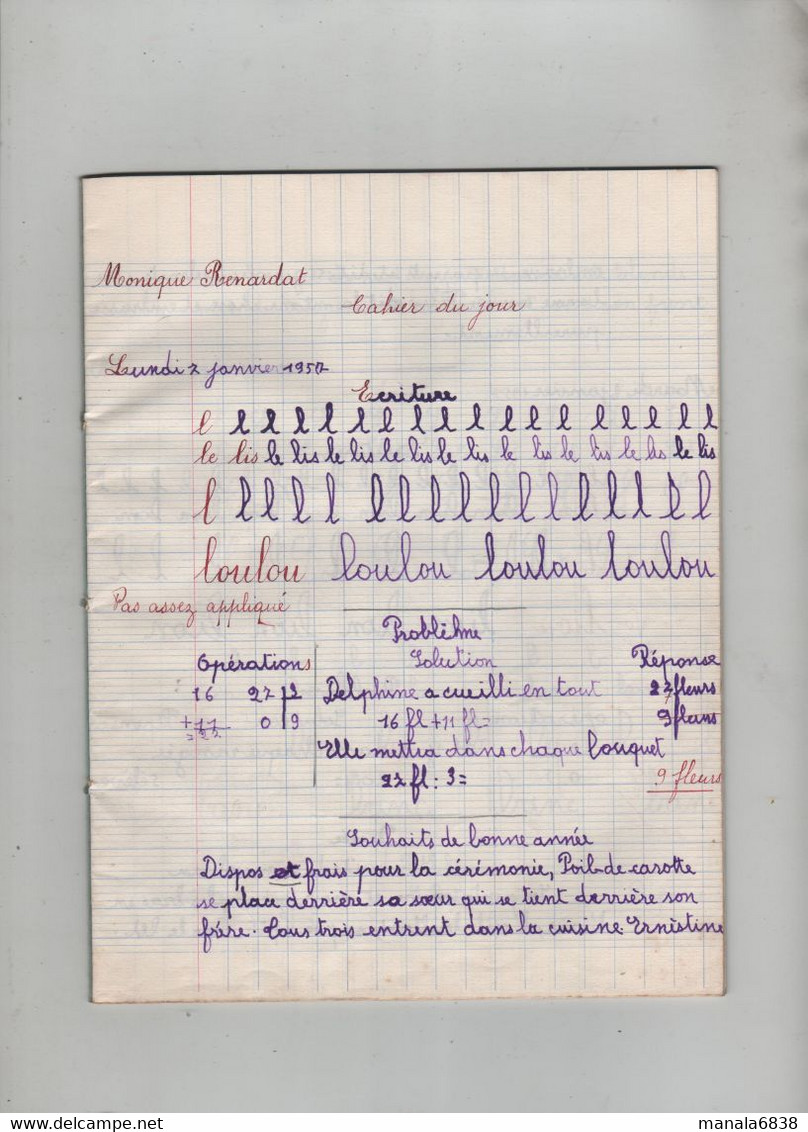 Monique Renardat
Cahier du jour
Lundi 7 janvier 1957
Ecriture
l l l l l l l l l l l l l l l l
le lis le lis le lis le lis le lis le lis le lis le lis le lis
l l l l l l l l l l l l l l l l
loulou loulou loulou loulou
Pas assez appliqué
Problême
Opérations Solution Réponse
16 27 3 Delphine a cueilli en tout 27 fleurs
+11 0 9 16 fl + 11 fl = 9 fleurs
= 27
Elle mettra dans chaque bouquet
27 fl : 3 = 9 fleurs
Souhaits de bonne année
Dispos et frais pour la cérémonie, Poil-de-carotte
se place derrière sa sœur qui se tient derrière son
frére. Tous trois entrent dans la cuisine. Ernèstine
manala6838